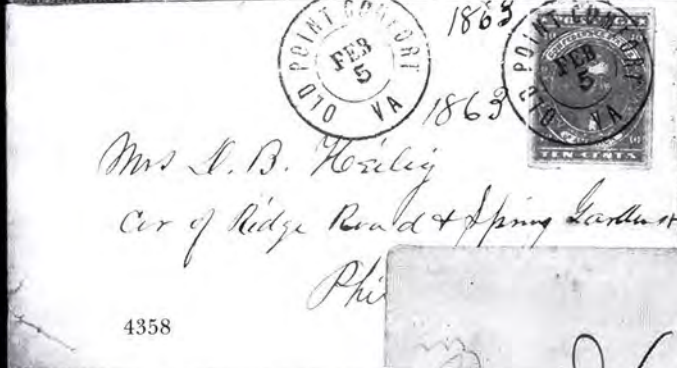 OLD POINT COMFORT
FEB
5
VA
1863
OLD POINT COMFORT
FEB
5
VA
1863
TEN CENTS
Mrs D. B. Heilig
Cor of Ridge Road & Spring Garden st
Phi
4358